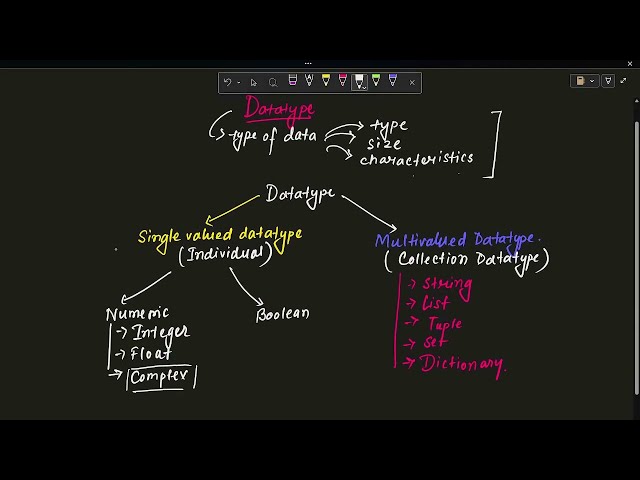 Datatype
type of data
type
size
characteristics
Datatype
Single valued datatype
(Individual)
Numeric
Integer
Float
Complex
Boolean
Multivalued Datatype.
(Collection Datatype)
String
List
Tuple
Set
Dictionary.